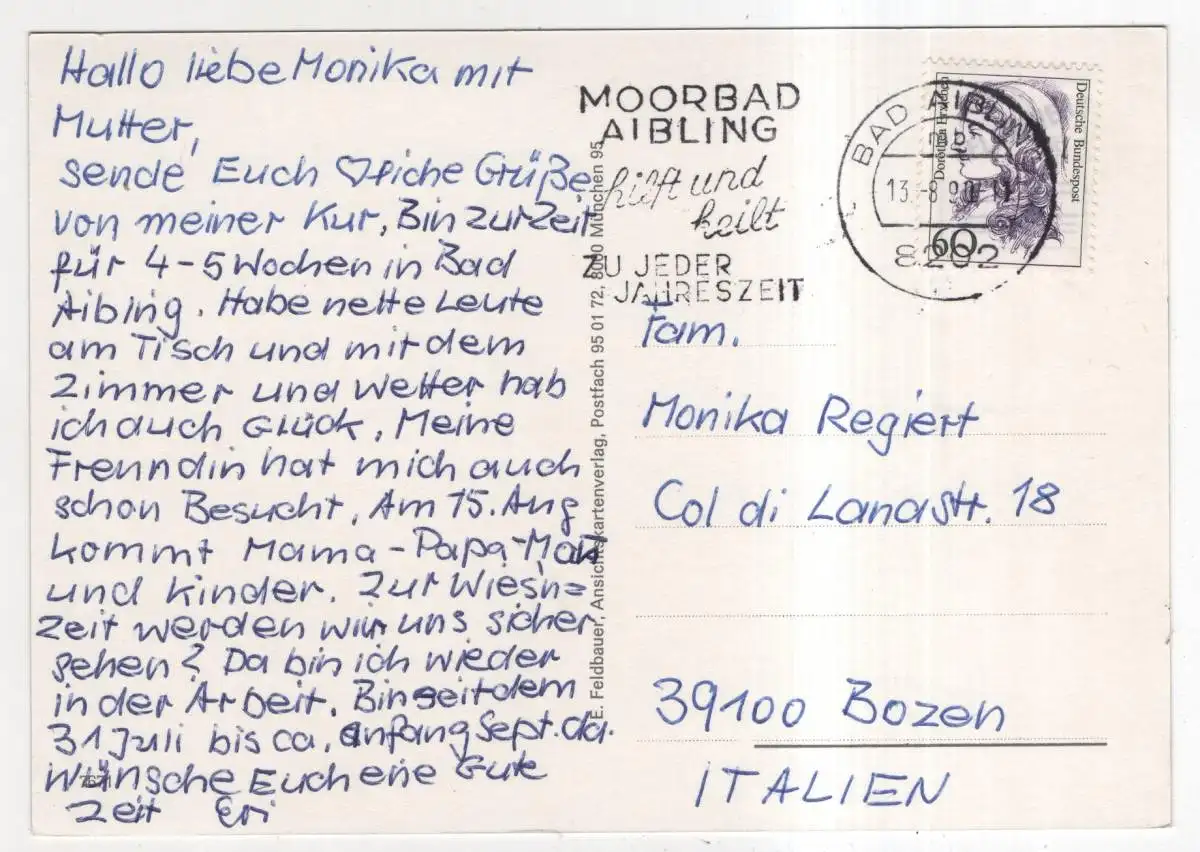 Hallo liebe Monika mit
Mutter,
sende Euch ♡liche Grüße
von meiner Kur, Bin zur Zeit
für 4-5 Wochen in Bad
Aibing. Habe nette Leute
am Tisch und mit dem
Zimmer und Wetter hab
ich auch Glück, Meine
Frenndin hat mich auch
schon Besucht, Am 15. Aug
kommt Mama-Papa-
und Kinder. Zur Wies'n=
Zeit werden wir uns sicher
sehen? Da bin ich wieder
in der Arbeit. Bin seit dem
31 Juli bis ca. anfang Sept. da.
Wünsche Euch eine Gute
Zeit Eri
E. Feldbauer, Ansichtskartenverlag, Postfach 95 01 72, 8000 München 95
MOORBAD
AIBLING
hilft und
heilt
ZU JEDER
JAHRESZEIT
BAD AIBLING
13.-8.90
8202
Dorothea Erxleben
Deutsche Bundespost
60
Fam.
Monika Regiert
Col di Lanastr. 18
39100 Bozen
ITALIEN